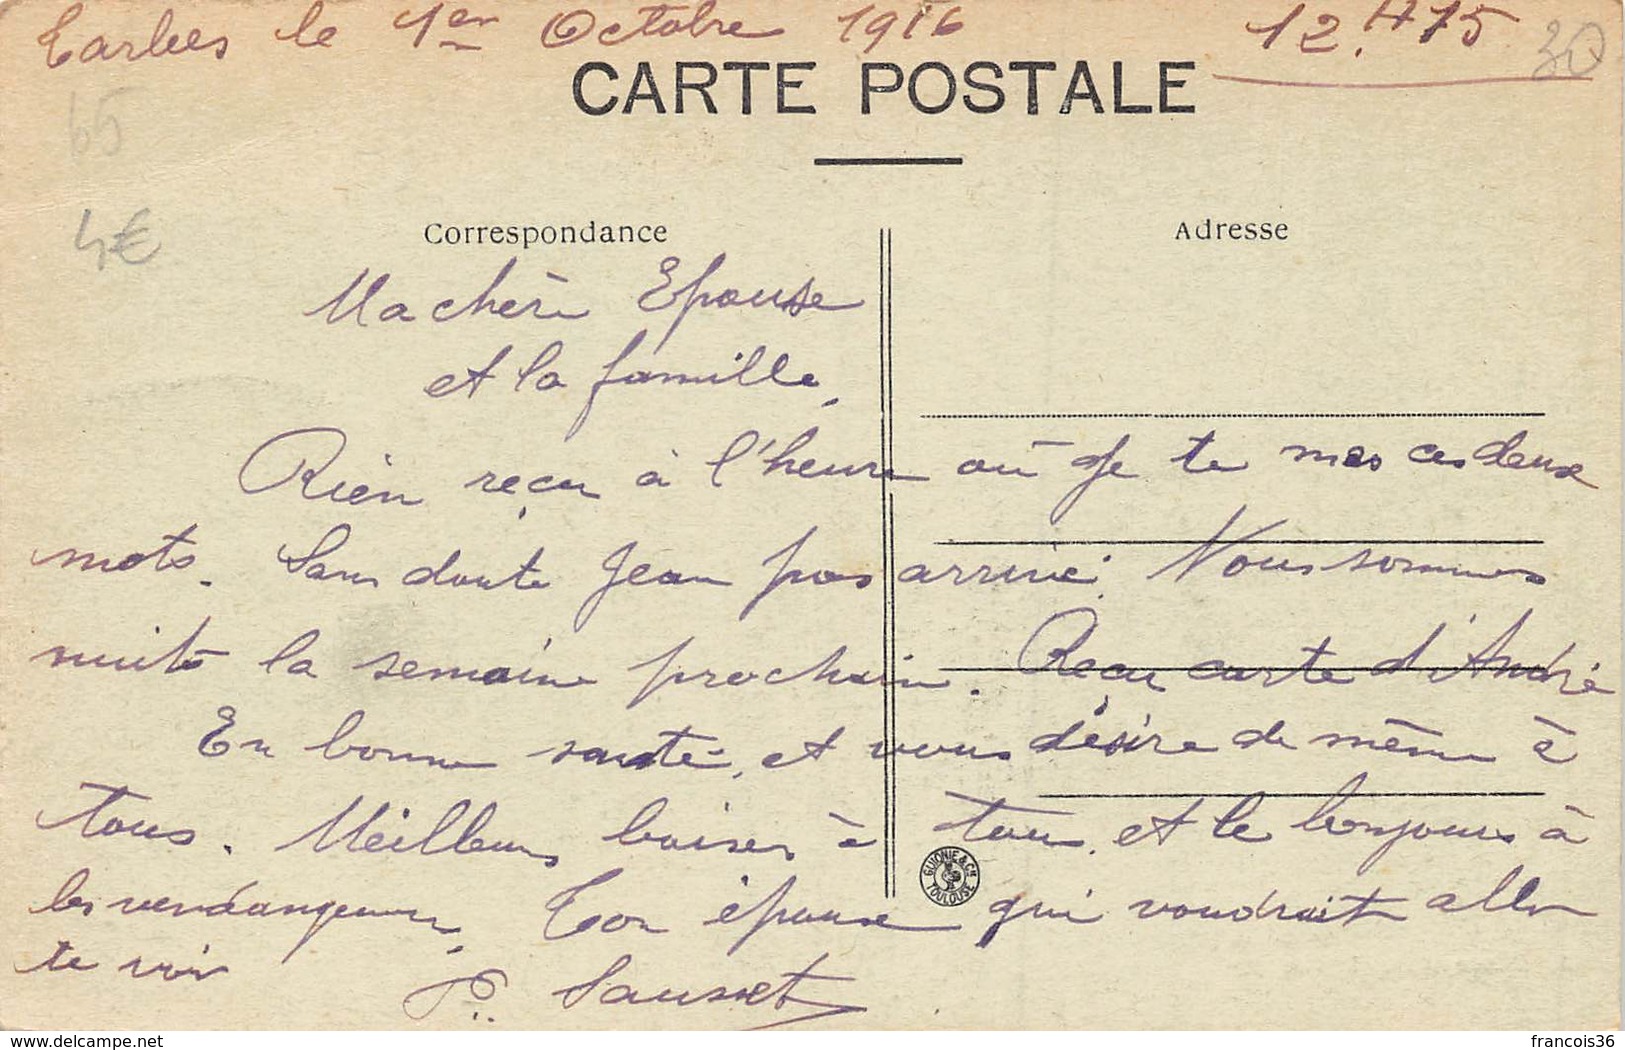 Tarbes le 1er Octobre 1916 12.H15
30
CARTE POSTALE
65
4€
Correspondance
Adresse
Ma chère Epouse
et la famille,
Rien reçu à l'heure où Je te mes ces deux
mots. Sans doute Jean pas arrivé. Nous sommes
nuits la semaine prochain. Reçu carte d'André
En bonne santé, et vous désire de même à
tous. Meilleurs baisers à tous, et le bonjours à
les vendangeurs, Ton épouse qui voudrait aller
te voir P. Sausset
GUIONIE & Cie TOULOUSE
www.delcampe.net
francois36